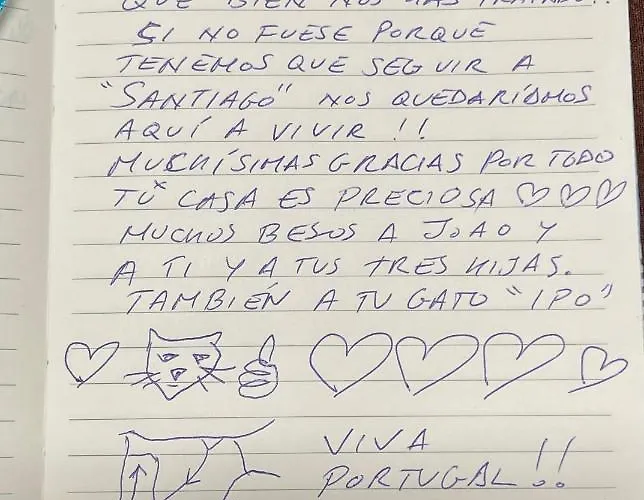 QUE BIEN NOS HAS TRATADO!!
SI NO FUESE PORQUE
TENEMOS QUE SEGUIR A
"SANTIAGO" NOS QUEDARÍAMOS
AQUÍ A VIVIR !!
MUCHÍSIMAS GRACIAS POR TODO
TU CASA ES PRECIOSA ♡♡♡
MUCHOS BESOS A JOAO Y
A TI Y A TUS TRES HIJAS.
TAMBIÉN A TU GATO "IPO"
VIVA
PORTUGAL!!